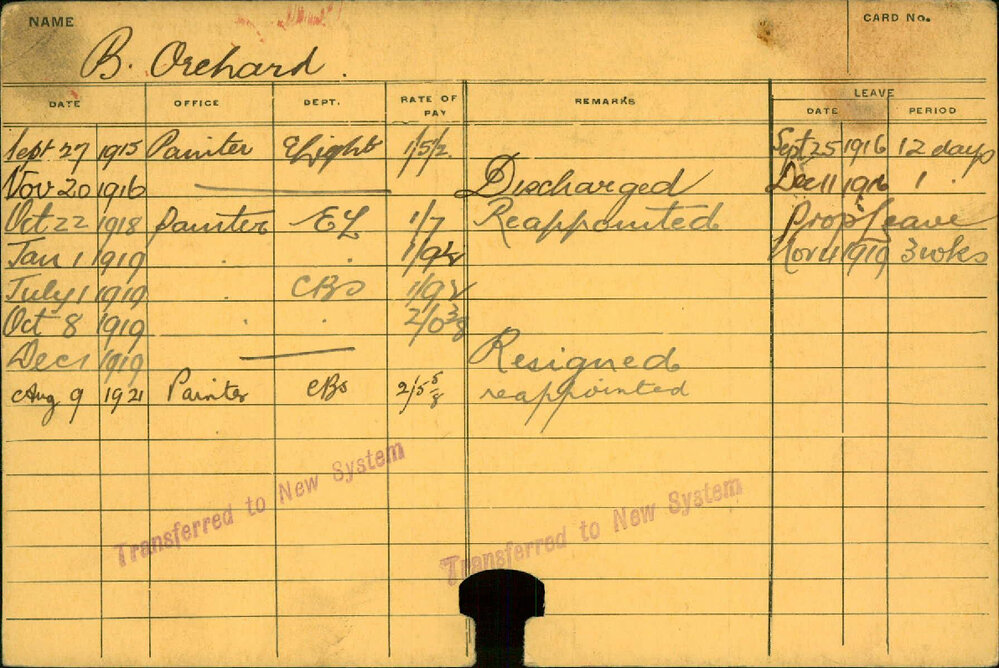 NAME
CARD No.
B. Orchard.
DATE OFFICE DEPT. RATE OF PAY REMARKS LEAVE
DATE PERIOD
Sept 27 1915 Painter ELight 1/5½ Sept 25 1916 12 days
Nov 20 1916 Discharged Dec 11 1916 1
Oct 22 1918 Painter EL 1/7 Reappointed Prop leave
Jan 1 1919 . . Nov 4 1919 3 wks
July 1 1919 . CBs
Oct 8 1919 . . 2/0⅜
Dec 1 1919 Resigned
Aug 9 1921 Painter CBs 2/5⅝ reappointed
Transferred to New System
Transferred to New System